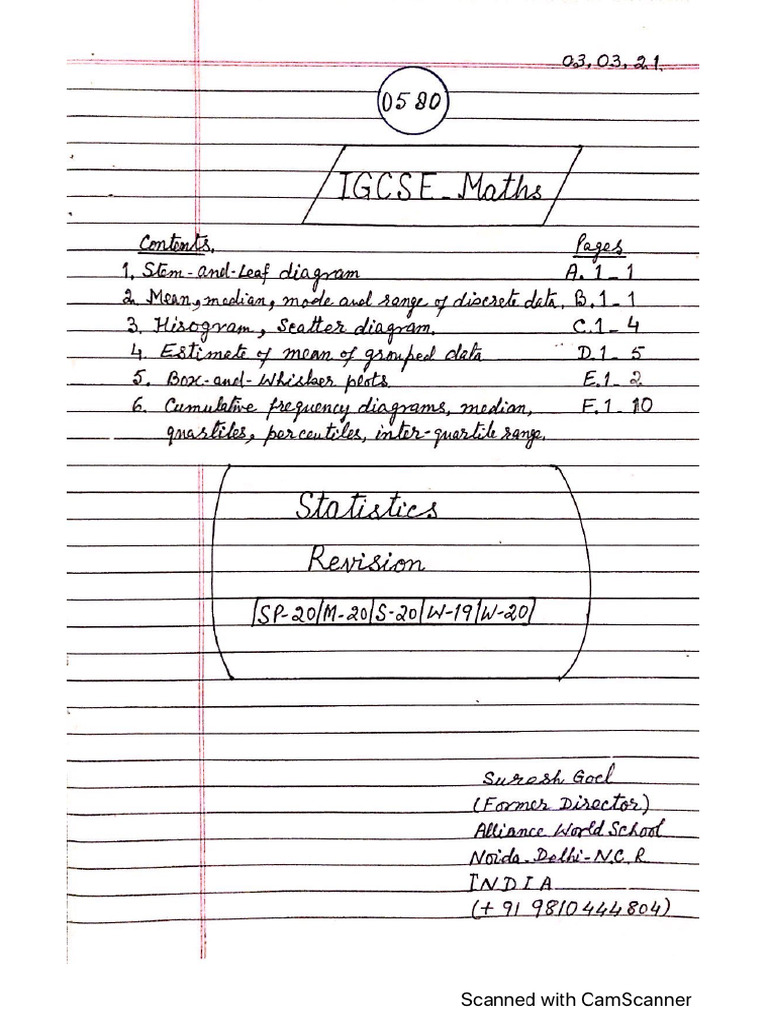 03,03,21.
0580
IGCSE-Maths
Contents. Pages
1. Stem-and-Leaf diagram A.1-1
2. Mean, median, mode and range of discrete data. B.1-1
3. Hisogram, Scatter diagram. C.1-4
4. Estimate of mean of grouped data D.1-5
5. Box-and-Whisker plots. E.1-2
6. Cumulative frequency diagrams, median, F.1-10
quartiles, percentiles, inter-quartile range.
Statistics
Revision
SP-20/M-20/S-20/W-19/W-20/
Suresh Goel
(Former Director)
Alliance World School
Noida-Delhi-N.C.R
INDIA
(+91 9810444804)
Scanned with CamScanner